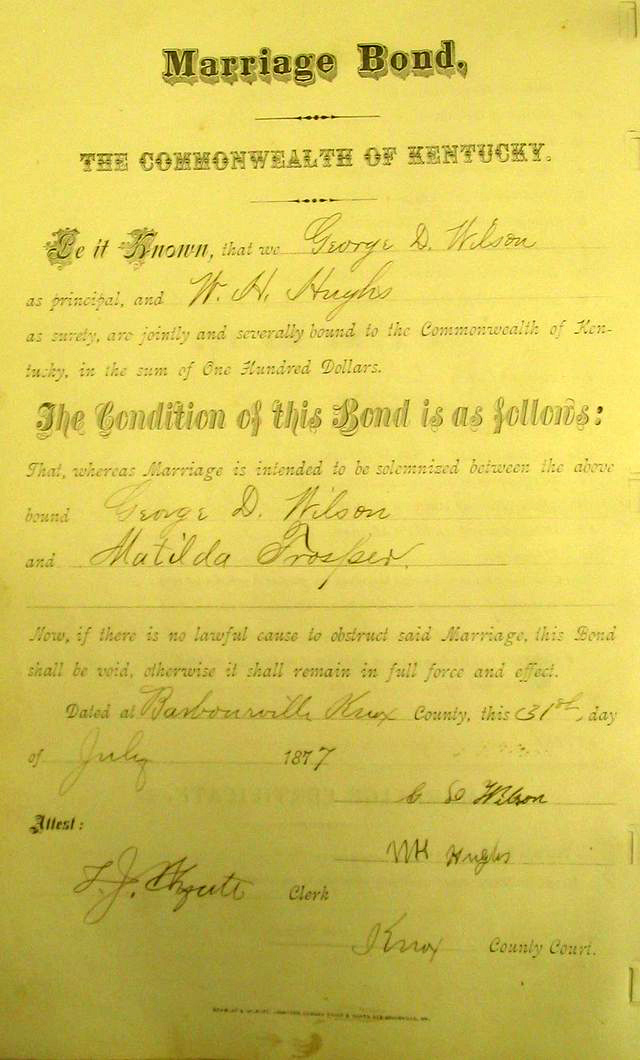 Marriage Bond,
THE COMMONWEALTH OF KENTUCKY.
Be it Known, that we George D. Wilson
as principal, and W. H. Hughs
as surety, are jointly and severally bound to the Commonwealth of Ken-
tucky, in the sum of One Hundred Dollars.
The Condition of this Bond is as follows:
That, whereas Marriage is intended to be solemnized between the above
bound George D. Wilson
and Matilda Trosper.
Now, if there is no lawful cause to obstruct said Marriage, this Bond
shall be void, otherwise it shall remain in full force and effect.
Dated at Barbourville Knox County, this 31st, day
of July 1877
Wilson
Attest:
WH Hughs
T. J. Clerk
Knox County Court.